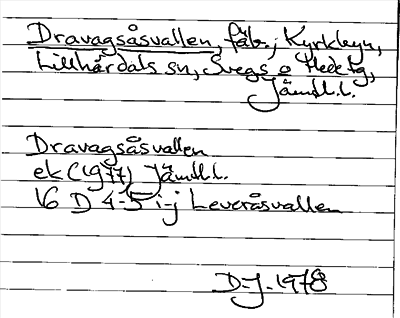 Dravagsåsvallen, fäb. i Kyrkbyn,
Lillhärdals sn, Svegs o Hede tg,
Jämtl.l.
Dravagsåsvallen
ek (1977) Jämtl.l.
16 D 4-5 i-j Leveråsvallen
D-J. 1978